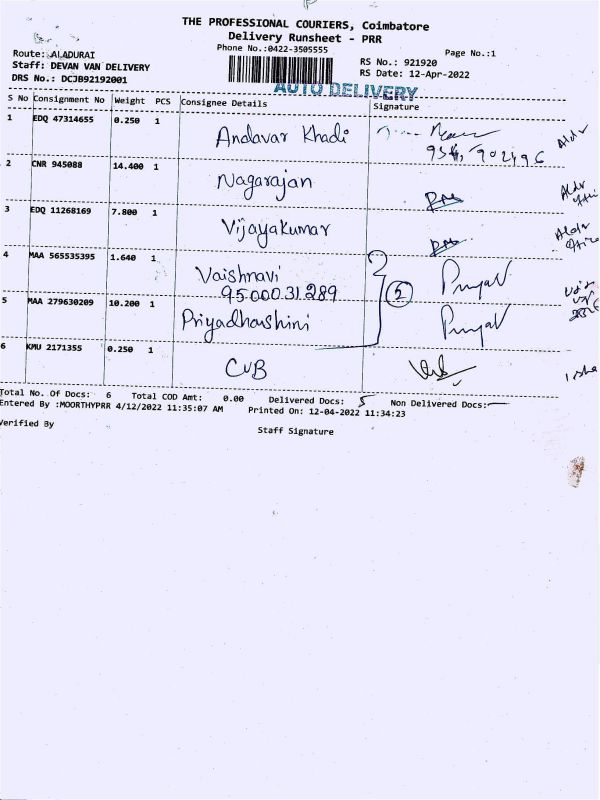 THE PROFESSIONAL COURIERS, Coimbatore
Delivery Runsheet - PRR
Phone No.:0422-3505555
Page No.:1
Route: ALADURAI
RS No.: 921920
Staff: DEVAN VAN DELIVERY
RS Date: 12-Apr-2022
DRS No.: DCJB92192001
AUTO DELIVERY
S No Consignment No Weight PCS Consignee Details Signature
1 EDQ 47314655 0.250 1 Andavar Khadi
2 CNR 945088 14.400 1 Nagarajan
3 EDQ 11268169 7.800 1 Vijayakumar
4 MAA 565535395 1.640 1 Vaishnavi
9500031289
5 MAA 279630209 10.200 1 Priyadharshini
6 KMU 2171355 0.250 1 CUB
Total No. Of Docs: 6 Total COD Amt: 0.00 Delivered Docs: 5 Non Delivered Docs:
Entered By :MOORTHYPRR 4/12/2022 11:35:07 AM Printed On: 12-04-2022 11:34:23
Verified By
Staff Signature